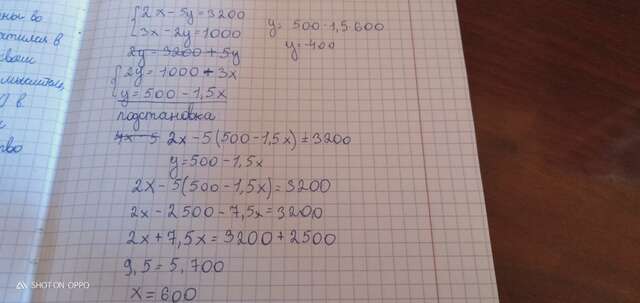 ны во
атился в
своем
мыслител
) в
тво
{2x - 5y = 3200
3x - 2y = 1000
2y = 3200 + 5y
{2y = 1000 + 3x
y = 500 - 1,5x
подстановка
4x - 5 2x - 5(500 - 1,5x) = 3200
y = 500 - 1,5x
2x - 5(500 - 1,5x) = 3200
2x - 2500 - 7,5x = 3200
2x + 7,5x = 3200 + 2500
9,5 = 5,700
x = 600
y = 500 - 1,5 · 600
y = 400
SHOT ON OPPO